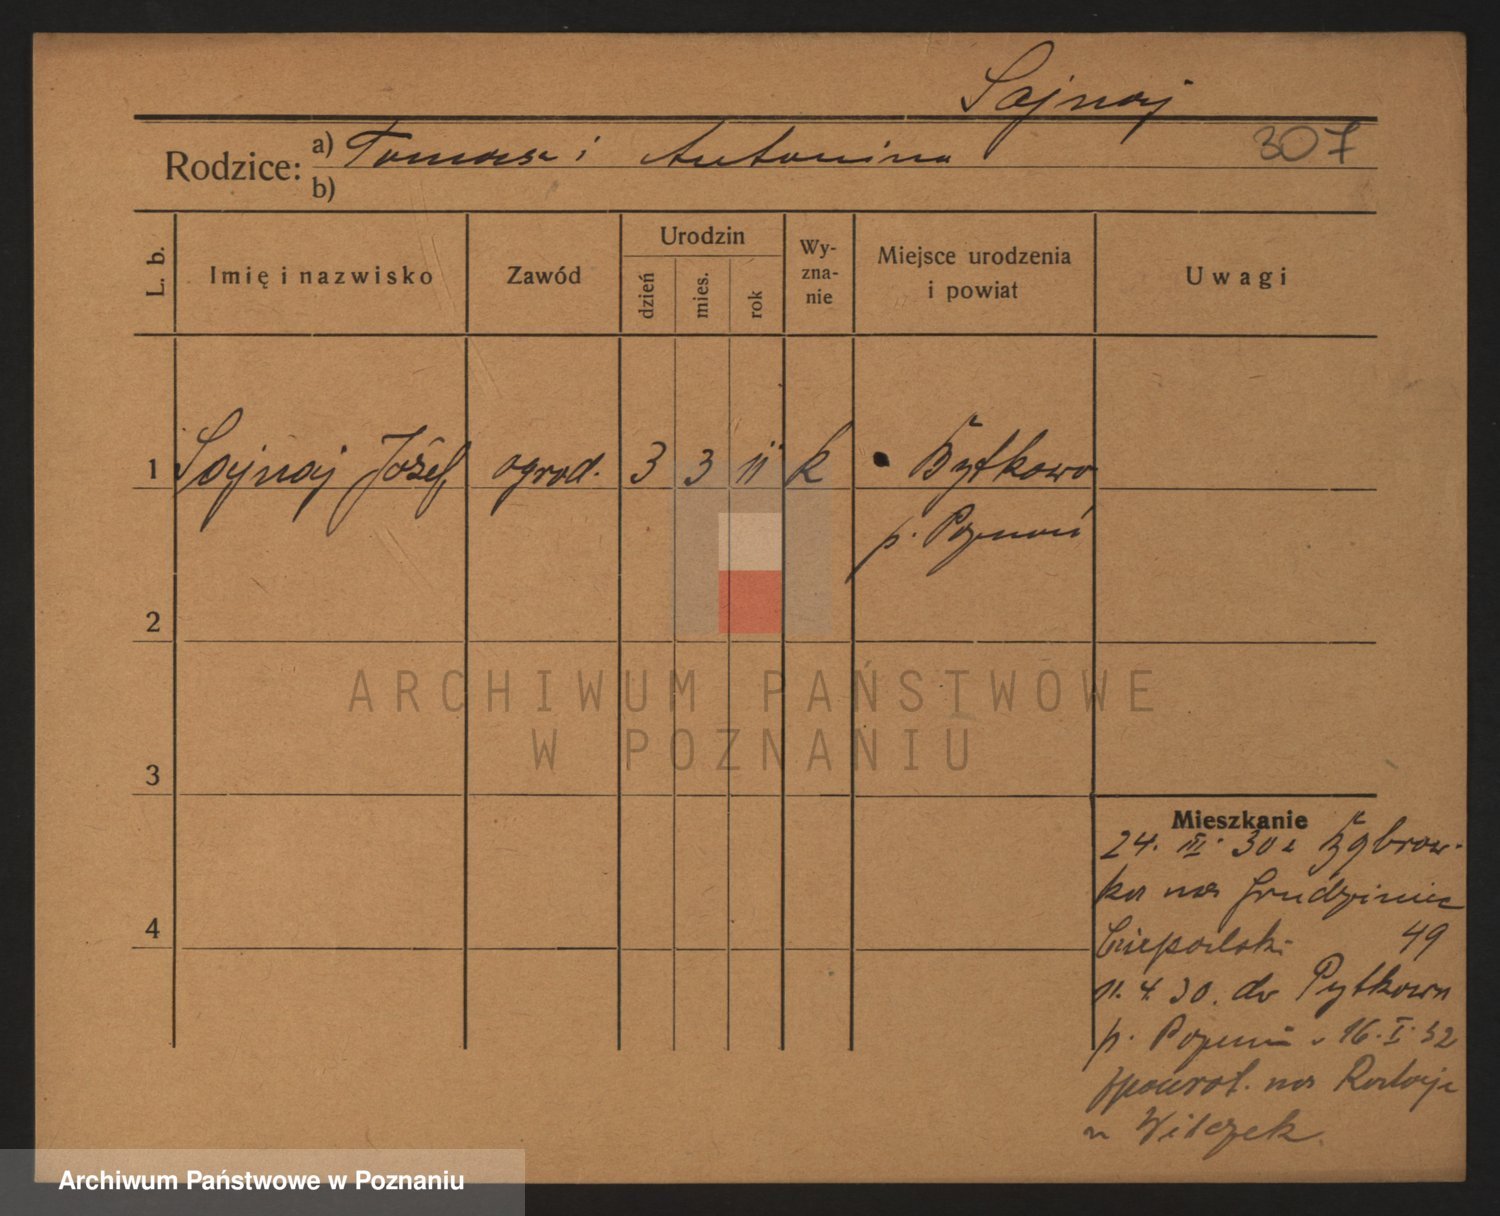 Sojnaj
307
Rodzice: a) Tomasz i Antonina
b)
L. b.
Imię i nazwisko
Zawód
Urodzin
dzień
mies.
rok
Wy-
zna-
nie
Miejsce urodzenia
i powiat
Uwagi
1 Sojnaj Józef ogrod. 3 3 11 k Bytkowo
p. Poznań
2
3
4
Mieszkanie
24. III. 30 z
ka na Grudziniec
49
11. 4. 30. do Pytkowa
p. Poznań 16. I. 32
na
u Witczek.
ARCHIWUM PAŃSTWOWE
W POZNANIU
Archiwum Państwowe w Poznaniu